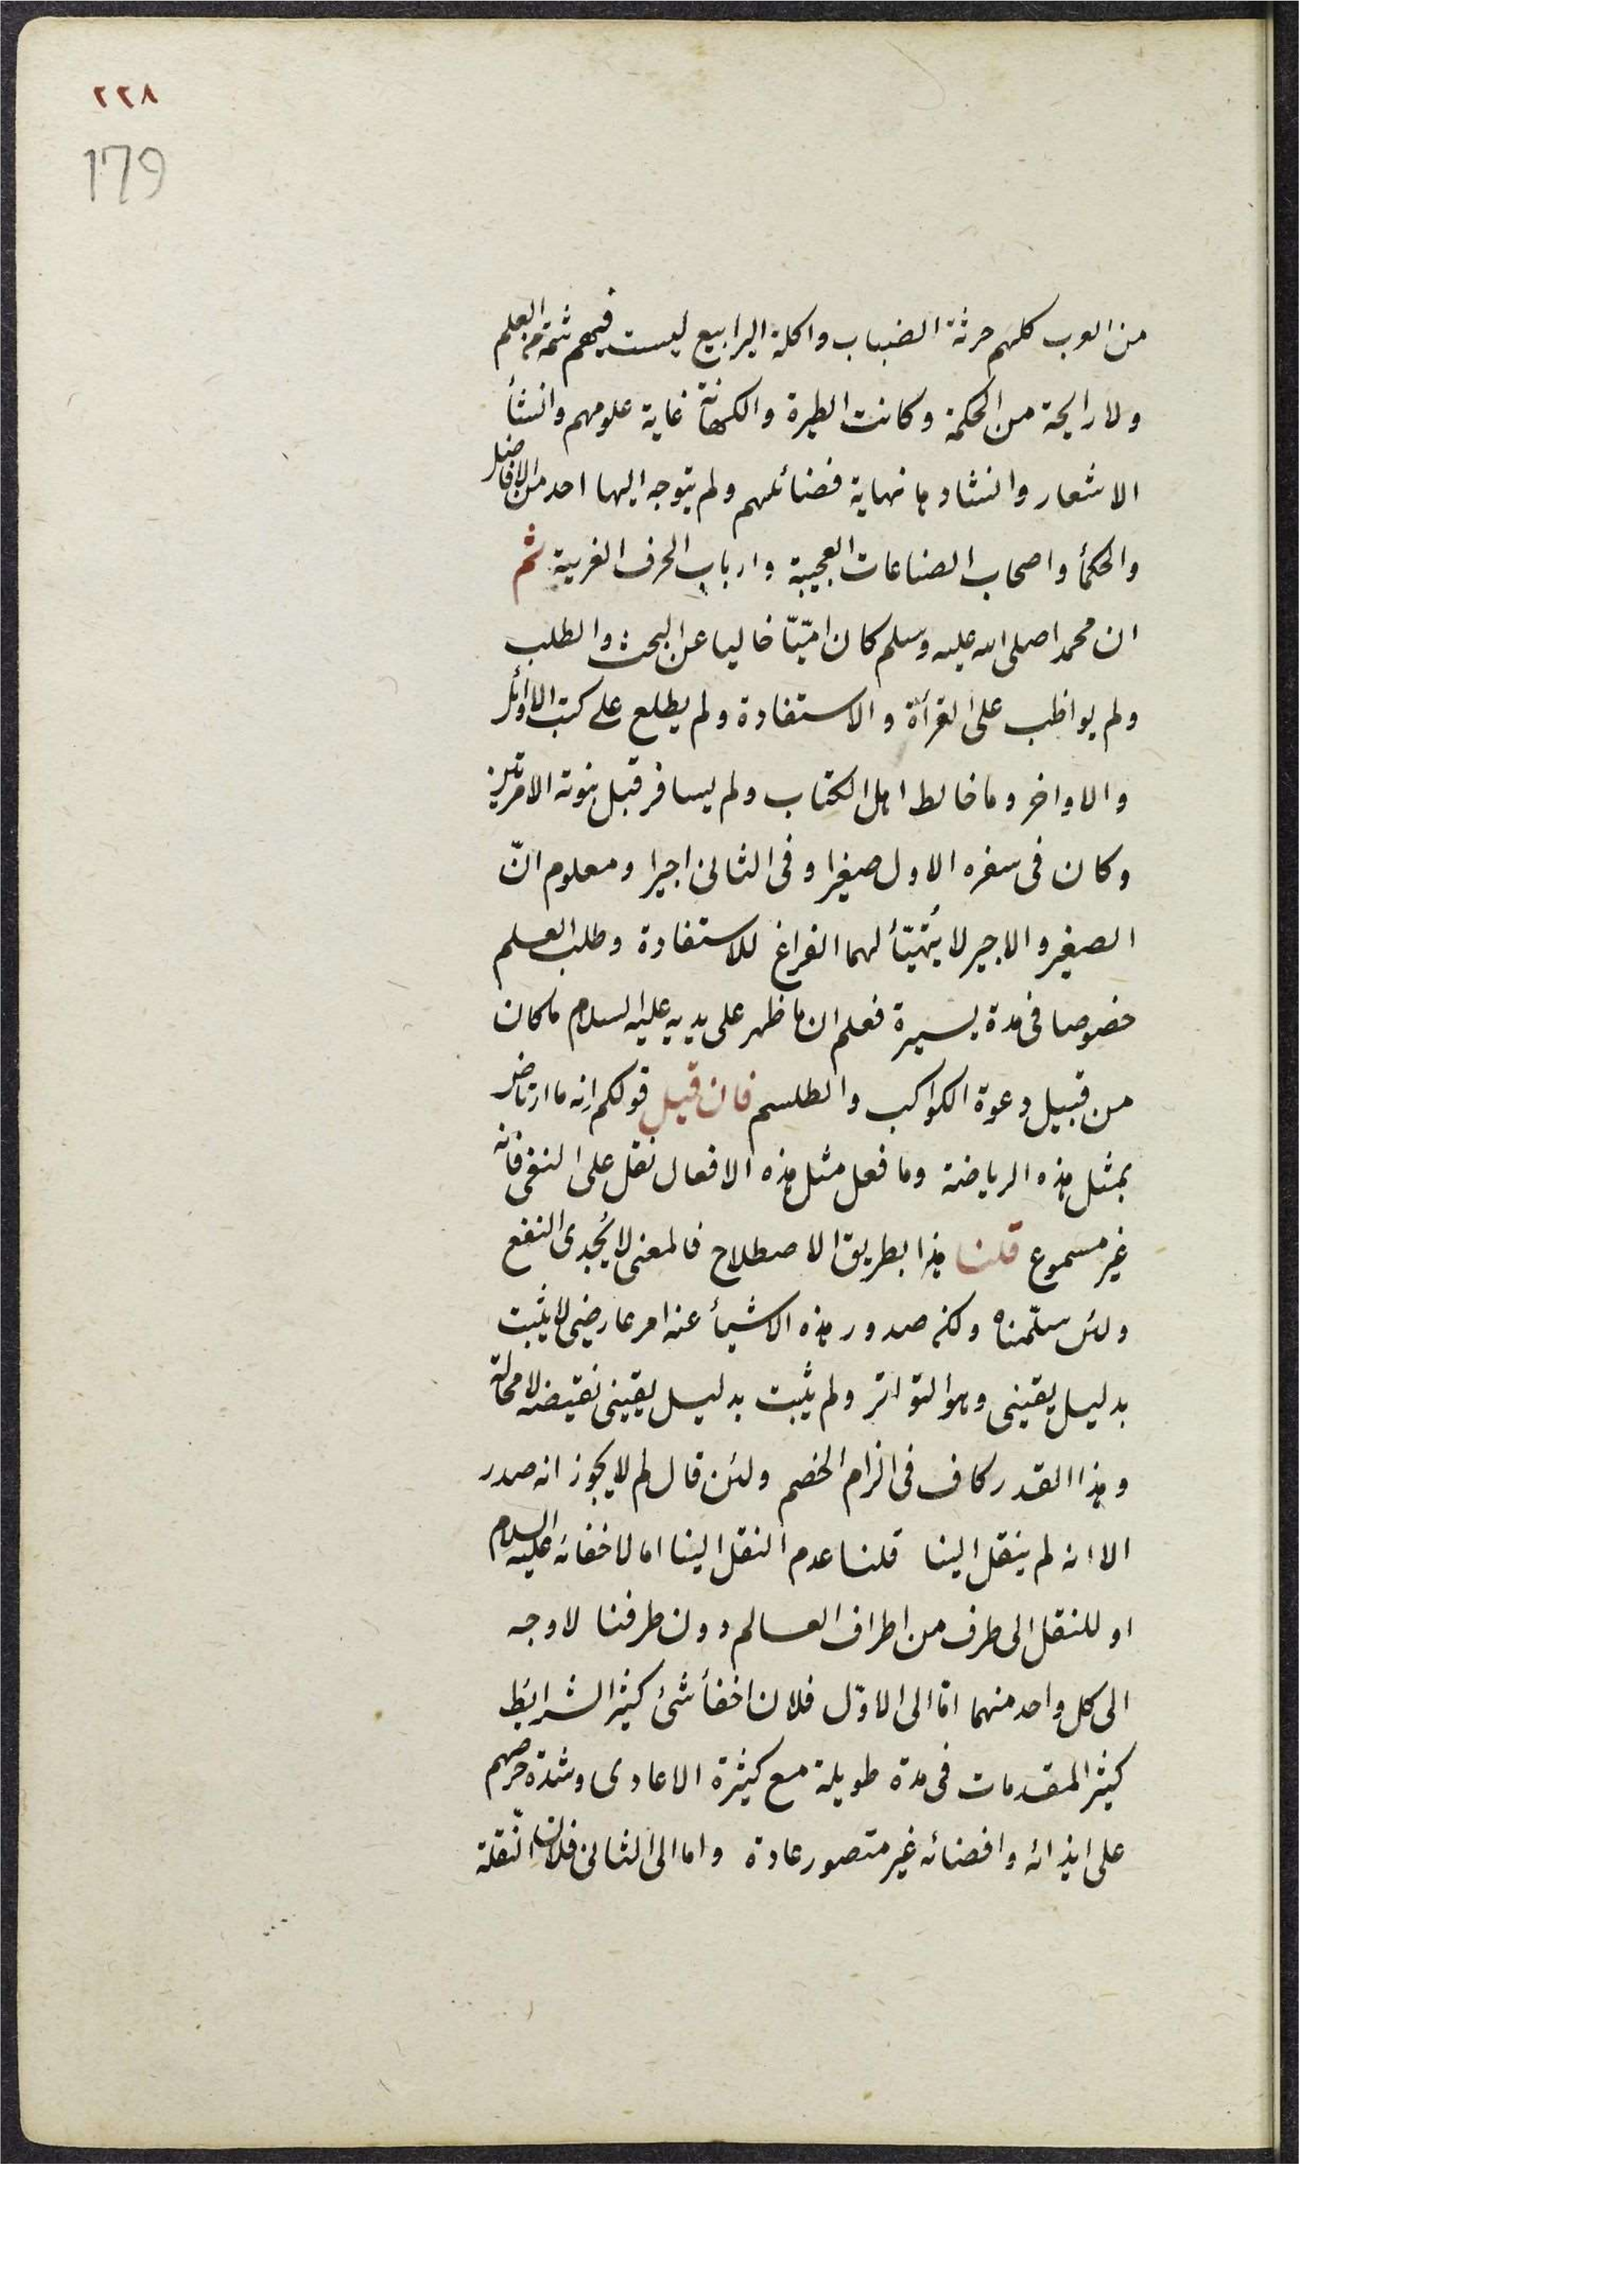 ٢٢٨
179
من العرب كلهم حرثة الضباب واكلة اليرابيع ليست فيهم شمة من العلم
ولا رايحة من الحكمة وكانت الطيرة والكهانة غاية علومهم وانشأ
الاشعار وانشادها نهاية فضائلهم ولم يتوجه اليها احد من الافاضل
والحكمأ واصحاب الصناعات العجيبة وارباب الحرف الغريبة ثم
ان محمدا صلى الله عليه وسلم كان امّيّا خاليا عن البحث والطلب
ولم يواظب على القرأة والاستفادة ولم يطلع على كتب الاوائل
والاواخر وما خالط اهل الكتاب ولم يسافر قبل نبوته الا مرتين
وكان فى سفره الاول صغيرا وفى الثانى اجيرا ومعلوم انّ
الصغير والاجير لا يتهيّأ لهما الفراغ للاستفادة وطلب العلم
خصوصا فى مدة يسيرة فعلم ان ما ظهر على يديه عليه السلام ما كان
من قبيل دعوة الكواكب والطلسم فان قيل قولكم انه ما ارتاض
بمثل هذه الرياضة وما فعل مثل هذه الافعال نقل على النفى فانه
غير مسموع قلنا هذا بطريق الاصطلاح فالمعنى لا يُجدى النفع
ولئن سلّمناه ولكن صدور هذه الاشيأ عنه امر عارضى لا يثبت
بدليل يقينى وهو التواتر ولم يثبت بدليل يقينى نقيضه لا محالة
وهذا القدر كاف فى الزام الخصم ولئن قال لم لا يجوز انه صدر
الا انه لم ينقل الينا قلنا عدم النقل الينا اما لاخفائه عليه السلام
او للنقل الى طرف من اطراف العالم دون طرفنا لا وجه
الى كل واحد منهما امّا الى الاوّل فلان اخفأ شئ كثير الشرايط
كثير المقدمات فى مدة طويلة مع كثيرة الاعادى وشدة حرصهم
على ايذائه وافضائه غير متصور عادة واما الى الثانى فلان النّقلة